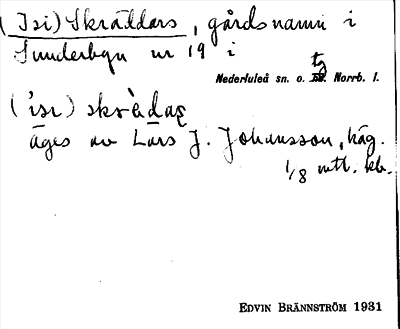 (Isi) Skräddars, gårdsnamn i
Sunderbyn nr 19 i
Nederluleå sn. o. tg Norrb. l.
('isi) skrèdaʂ
äges av Lars J. Johansson, häg.
1/8 mtl. kb.
EDVIN BRÄNNSTRÖM 1931